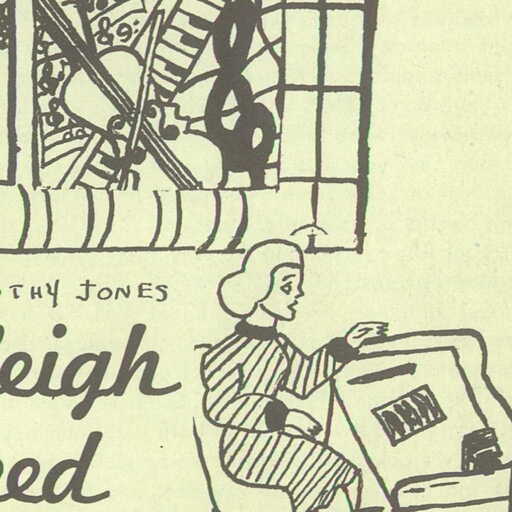 OTHY JONES
leigh
eed